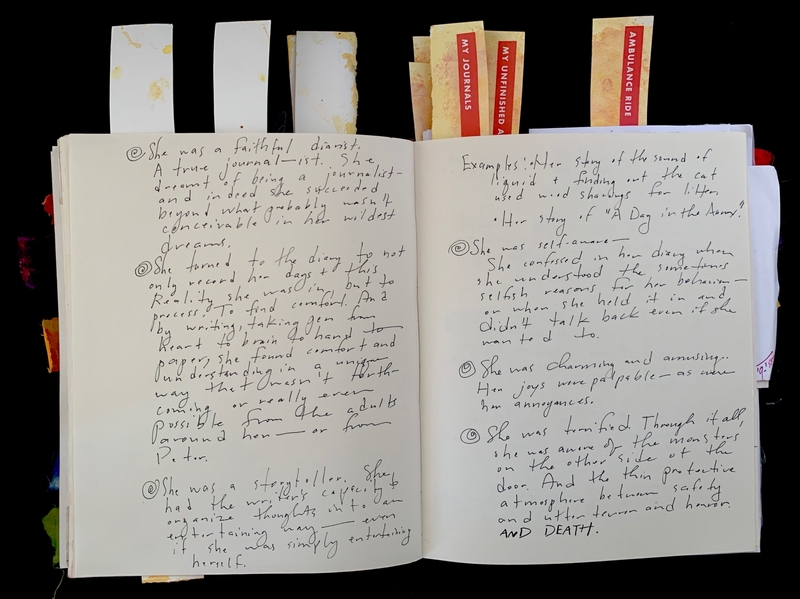 MY JOURNALS
MY UNFINISHED A
AMBULANCE RIDE
She was a faithful diarist.
A true journal—ist. She
dreamt of being a journalist—
and indeed she succeeded
beyond what probably wasn't
conceivable in her wildest
dreams.
She turned to the diary to not
only record her days & this
Reality she was in, but to
process. To find comfort. And
by writing, taking pen from
heart to brain to hand to
paper, she found comfort and
understanding in a unique
way that wasn't forth-
coming or really even
possible from the adults
around her — or from
Peter.
She was a storyteller. She
had the writer's capacity to
organize thoughts in to an
entertaining way — even
if she was simply entertaining
herself.
Examples: Her story of the sound of
liquid & finding out the cat
used wood shavings for litter
• Her story of "A Day in the Annex."
She was self-aware—
She confessed in her diary when
she understood the sometimes
selfish reasons for her behavior—
or when she held it in and
didn't talk back even if she
wanted to.
She was charming and amusing.
Her joys were palpable — as were
her annoyances.
She was terrified. Through it all,
she was aware of the monsters
on the other side of the
door. And the thin protective
atmosphere between safety
and utter terror and horror.
AND DEATH.